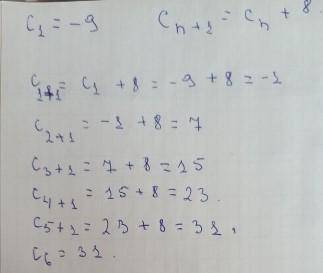 C₁ = -9 Cₙ₊₁ = Cₙ + 8
C₁₊₁ = C₁ + 8 = -9 + 8 = -1
C₂₊₁ = -1 + 8 = 7
C₃₊₁ = 7 + 8 = 15
C₄₊₁ = 15 + 8 = 23.
C₅₊₁ = 23 + 8 = 31,
C₆ = 31.